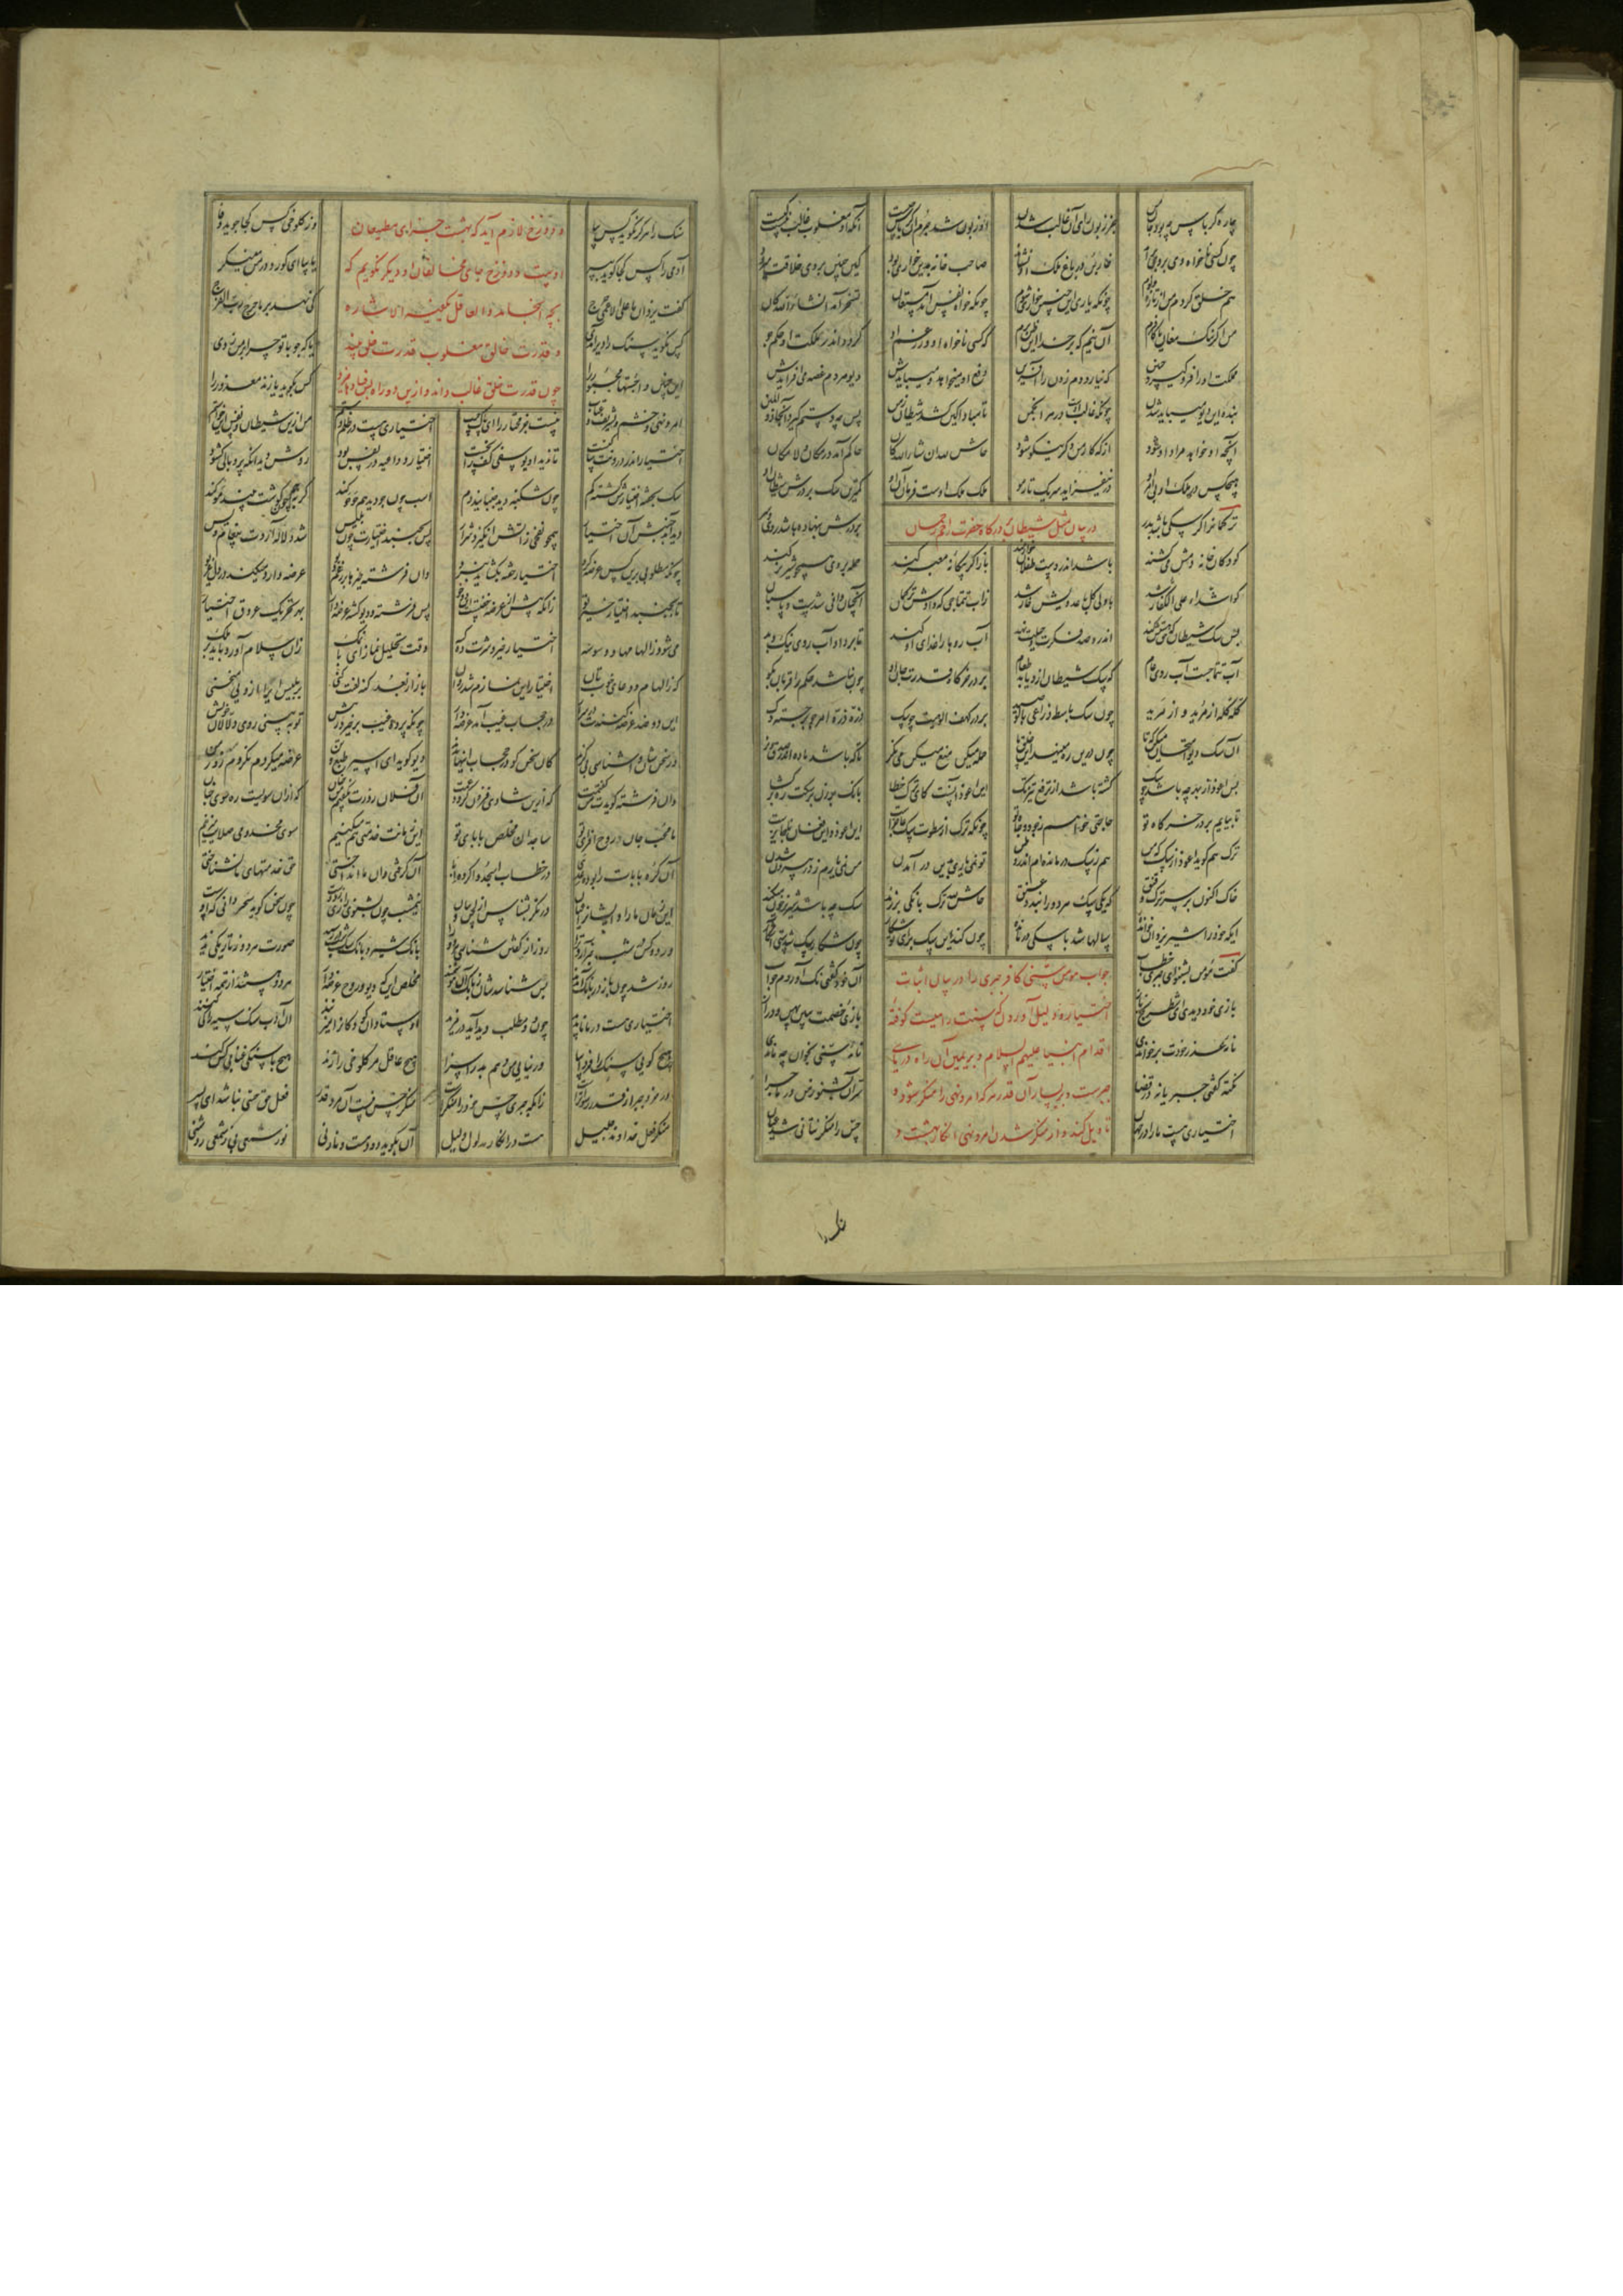 چاره کرباس چه بود جان من جز زبون رای آن غالب شدن او زبون شد جرم این کرباس چیست آنکه او مغلوب غالب نیست کیست
چون کسی ناخواه وی بر وی براند خاربن در باغ ملک او نشاند صاحب خانه بدین خواری بود کین چنین بر وی خلاقت میرود
هم خلق گردم من ار تازه و نوم چونکه یار این چنین خواری شوم چونکه خواه نفس آمد مستعان تسخر آمد ایش شاء الله کان
من اگر ننگ مغان یا کافرم آن نیم که بر خدا این ظن برم که کسی ناخواه او و رغم او گردد اندر ملکت او حکم جو
ملکت او را فرو گیرد چنین که نیارد دم زدن آفرین دفع او میخواهد و می بایدش دیو هر دم غصه می افزایدش
بنده این دیو میباید شدن چونکه غالب اوست در هر انجمن تا مبادا کین کشد شیطان ز من پس چه دستم گیرد آنجا ذوالمنن
آنچه او خواهد مراد او شود از که کار من دگر نیکو شود حاش لله ایش شاء الله کان حاکم آمد در مکان و لامکان
هیچکس در ملک او بی امر او در نیفزاید سر یک تار مو ملک ملک اوست فرمان آن او کمترین سگ بر درش شیطان او
در بیان مثل شیطان بر درگاه حضرت رحمن
ترکمانرا گر سگی باشد بدر بر درش بنهاده باشد روی و سر
کودکان خانه دمش میکشند باشد اندر دست طفلان خوارمند باز اگر بیگانه معبر کند حمله بر وی همچو شیر نر کند
که اشداء علی الکفار شد با ولی گل با عدو چون خار شد زاب تتماجی که دادش ترکمان آنچنان وافی شدست و پاسبان
پس سگ شیطان که حق هستش کند اندرو صد فکرت و حیلت تند آب روها را غذای او کند تا برد او آب روی نیک و بد
آب تتماجست آب روی عام که سگ شیطان ازو یابد طعام بر در خرگاه قدرت جان او چون نباشد حکم را قربان بگو
گله گله از مرید و از مرید چون سگ باسط ذراعی بالوصید بر در کهف الوهیت چو سگ ذره ذره امرجو برجسته رگ
ای سگ دیو امتحان میکن که تا چون درین ره مینهند این خلق پا حمله میکن منع میکن می نگر تا که باشد ماده اندر صدق و نر
پس اعوذ از بهر چه باشد چو سگ گشته باشد از ترفع تیزتگ این اعوذ آنست کای ترک خطا بانگ بر زن بر سگت ره برگشا
تا بیایم بر در خرگاه تو حاجتی خواهم ز جود و جاه تو چونکه ترک از سطوت سگ عاجزست این اعوذ و این فغان ناجایزست
ترک هم گوید اعوذ از سگ که من هم ز سگ درمانده ام اندر وطن تو نمی یاری برین در آمدن من نمی یارم ز در بیرون شدن
خاک اکنون بر سر ترک و قنق که یکی سگ هر دو را بندد عنق حاش لله ترک بانگی برزند سگ چه باشد شیر نر خون قی کند
ایکه خود را شیر یزدان خوانده سالها شد با سگی درمانده چون کند این سگ برای تو شکار چون شکار سگ شدستی آشکار
جواب مومن سنی کافر جبری را در بیان اثبات
اختیار و دلیل آوردن که سنت راهیست کوفته
اقدام انبیا علیهم السلام و بر یمین آن راه بیابان
جبرست و بر یسار آن قدر که امر و نهی را منکر شود و
تاویل کند و از منکر شدن امر و نهی انکار بهشت و
گفت مؤمن بشنو ای جبری خطاب آن خود گفتی نک آوردم جواب
بازی خود دیدی ای شطرنج باز بازی خصمت ببین پهن و دراز
نامه عذر خودت بر خواندی نامه سنی بخوان چه ماندی
نکته گفتی جبریانه در قضا سر آن بشنو ز من در ماجرا
اختیاری هست ما را در جهان حس را منکر نتانی شد عیان
سنگ را
دوزخ لازم آید که بهشت جزای مطیعان
است و دوزخ جای مخالفان او دیگر نگویم که
بچه انجامد والعاقل تکفیه الاشاره
و قدرت خالق مغلوب قدرت خلق بیند
چون قدرت خلق غالب داند و ازین دو راه
سنگ را هرگز نگوید کس بیا وز کلوخی کس کجا جوید وفا
آدمی را کس کجا گوید بپر یا بیا ای کور در من در نگر
گفت یزدان ما علی الاعمی حرج کی نهد بر ما حرج رب الفرج
کس نگوید سنگ را دیر آمدی یا که چوبا تو چرا بر من زدی
این چنین واجستها مجبور را کس بگوید یا زند معذور را
امر و نهی و خشم و تشریف و عتیب نیست جز مختار را ای پاک جیب اختیاری هست در ظلم و ستم من ازین شیطان و نفس این خواستم
اختیار اندر درونت ساکنست تا ندید او یوسفی کف را نخست اختیار و داعیه در نفس بود روش دید آنگه پر و بالی گشود
سگ بخفته اختیارش گشته گم چون شکنبه دید جنبانید دم اسب چون جو دید هم حوحو کند گربه هم چون گوشت بیند مو کند
دیدن آمد جنبش آن اختیار همچو نفخی ز آتش انگیزد شرار پس بجنبد اختیارت چون بلیس شد دلاله آردت پیغام ویس
چونکه مطلوبی برین کس عرضه کرد اختیار خفته بگشاید نبرد وان فرشته خیرها بر رغم دیو عرضه دارد میکند در دل غریو
تا بجنبد اختیار خیر تو زانکه پیش از عرضه خفتست این دو خو پس فرشته و دیو گشته عرضه دار بهر تحریک عروق اختیار
می شود ز الهامها و وسوسه اختیار خیر و شرت ده کسه وقت تحلیل نماز ای با نمک زان سلام آورد باید بر ملک
که ز الهام و دعای خوبتان اختیار این نمازم شد روان باز از بعد گنه لعنت کنی بر بلیس ایرا ازویی منحنی
این دو ضد عرضه کننده در سرار در حجاب غیب آمد عرضه دار چونکه پرده غیب برخیزد ز پیش تو ببینی روی دلالان خویش
وز سخنشان وا شناسی بی گزند کان سخن گو در حجاب اینها بدند دیو گوید ای اسیر طبع و تن عرضه میکردم نکردم زور من
وان فرشته گویدت من گفتمت که ازین شادی فزون گردد غمت آن فلان روزت نگفتم من چنان که از آن سویست ره سوی جنان
ما محب جان و روح افزای تو ساجدان مخلص بابای تو این زمانت خدمتی هم میکنیم سوی مخدومی صلایت میزنیم
آن گره بابات را بوده عدی در خطاب اسجدوا کرده ابا آن گرفتی وان ما انداختی حق خدمتهای ما نشناختی
این زمان ما را و ایشان را عیان در نگر بشناس از لحن و بیان نیم شب چون بشنوی رازی ز دوست چون سخن گوید سحر دانی که اوست
ور دو کس در شب خبر آرد ترا روز از گفتن شناسی هر دو را بانگ شیر و بانگ سگ در شب رسید صورت هر دو ز تاریکی ندید
روز شد چون باز در بانگ آمدند پس شناسدشان ز بانگ آن هوشمند مخلص این که دیو و روح عرضه دار هر دو هستند از تتمه اختیار
اختیاری هست در ما ناپدید چون دو مطلب دید آید در مزید اوستادان کودکان را میزنند آن ادب سنگ سیه را کی کنند
هیچ گویی سنگ را فردا بیا ور نیایی من دهم بد را سزا هیچ عاقل مر کلوخی را زند هیچ با سنگی عتابی کس کند
در خرد جبر از قدر رسواترست زانکه جبری حس خود را منکرست منکر حس نیست آن مرد قدر فعل حق حسی نباشد ای پسر
منکر فعل خداوند جلیل هست در انکار مدلول دلیل آن بگوید دود هست و نار نی نور شمعی بی ز شمعی روشنی